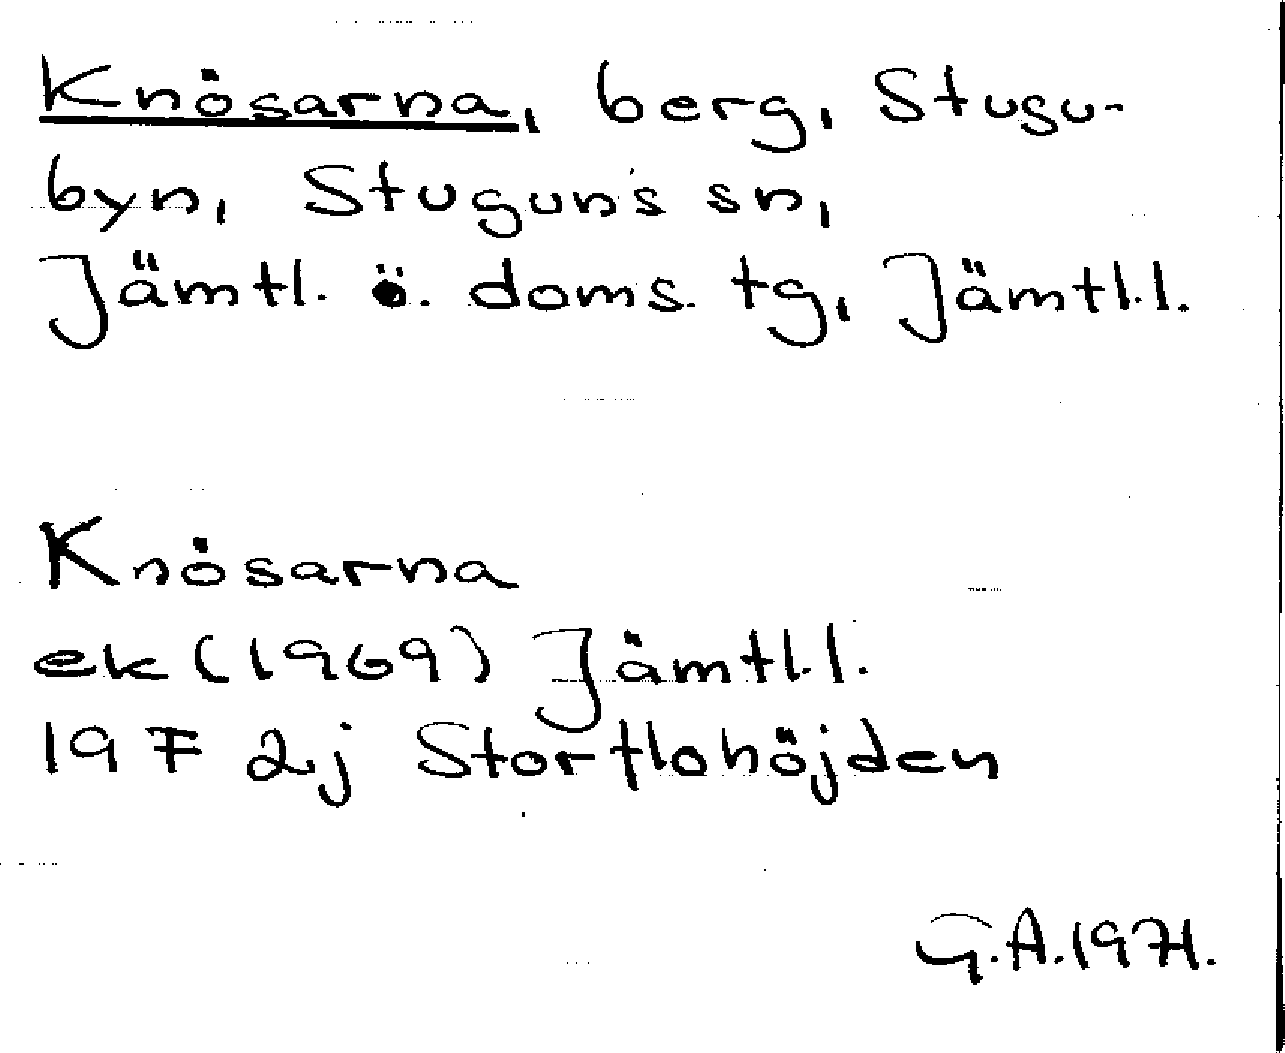 Knösarna, berg, Stugu-
byn, Stuguns sn,
Jämtl. ö. doms. tg, Jämtl.l.
Knösarna
ek (1969) Jämtl.l.
19 F 2j Stortlohöjden
G.A.1971.